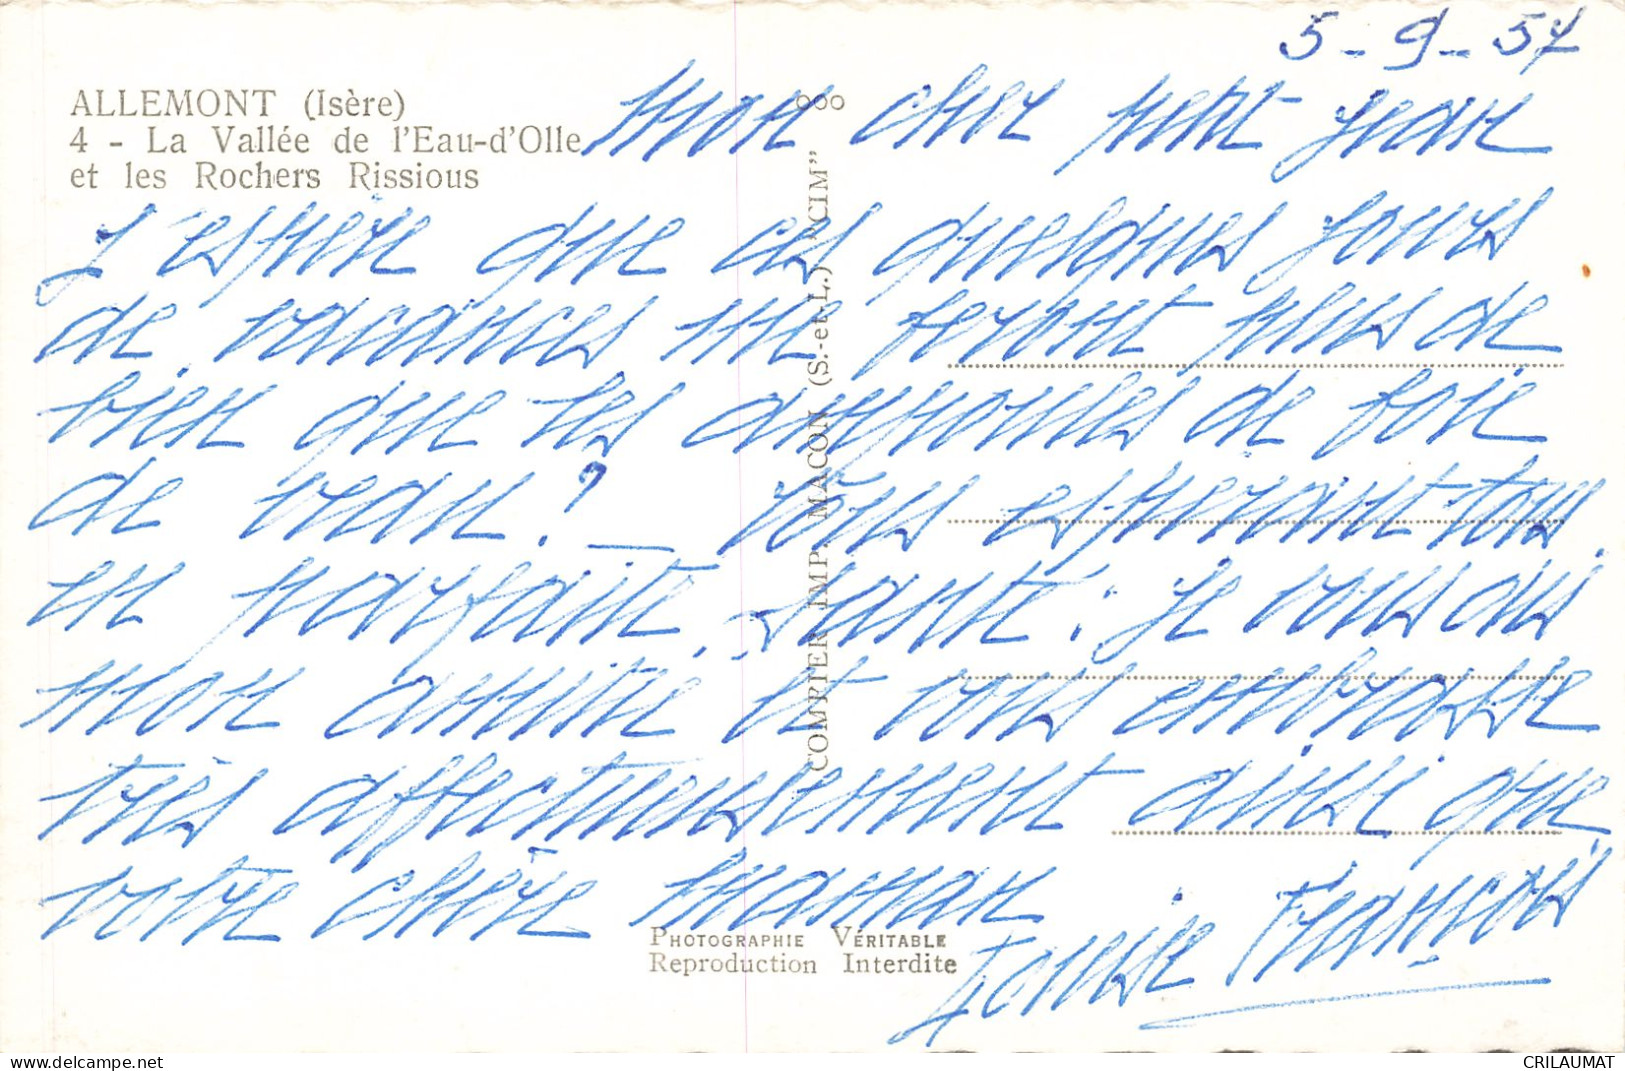 5-9-57
ALLEMONT (Isère)
4 - La Vallée de l'Eau-d'Olle
et les Rochers Rissious
Mon cher petit Jean
J'espère que ces quelques jours
de vacances me feront plus de
bien que les ampoules de foie
de veau ? — Vous espérant tous
en parfaite santé : je vous dis
mon amitié et vous embrasse
très affectueusement ainsi que
votre chère maman
Louise François
COMPIER IMP. MACON (S.-et-L.) "CIM"
PHOTOGRAPHIE VÉRITABLE
Reproduction Interdite
delcampe.net
CRILAUMAT